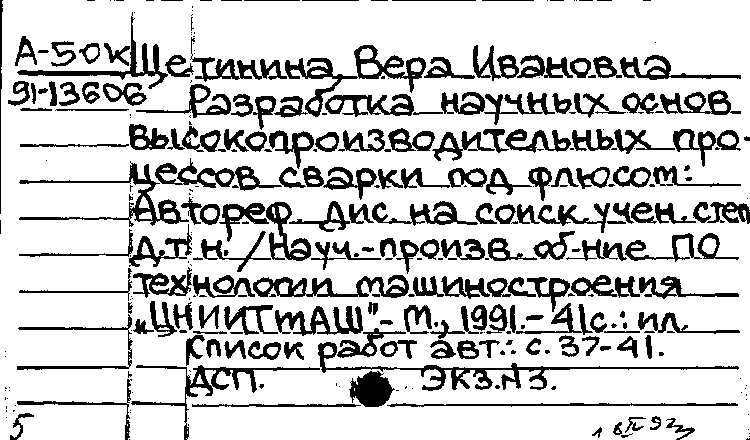 А-50к Щетинина, Вера Ивановна
91-13606 Разработка научных основ
высокопроизводительных про-
цессов сварки под флюсом:
Автореф. дис. на соиск. учен. степ
д.т н. /Науч.-произв. об-ние ПО
технологии машиностроения
„ЦНИИТмАШ".- М., 1991.- 41с.: ил.
Список работ авт.: с. 37-41.
ДСП. ЭКЗ.N3.
5